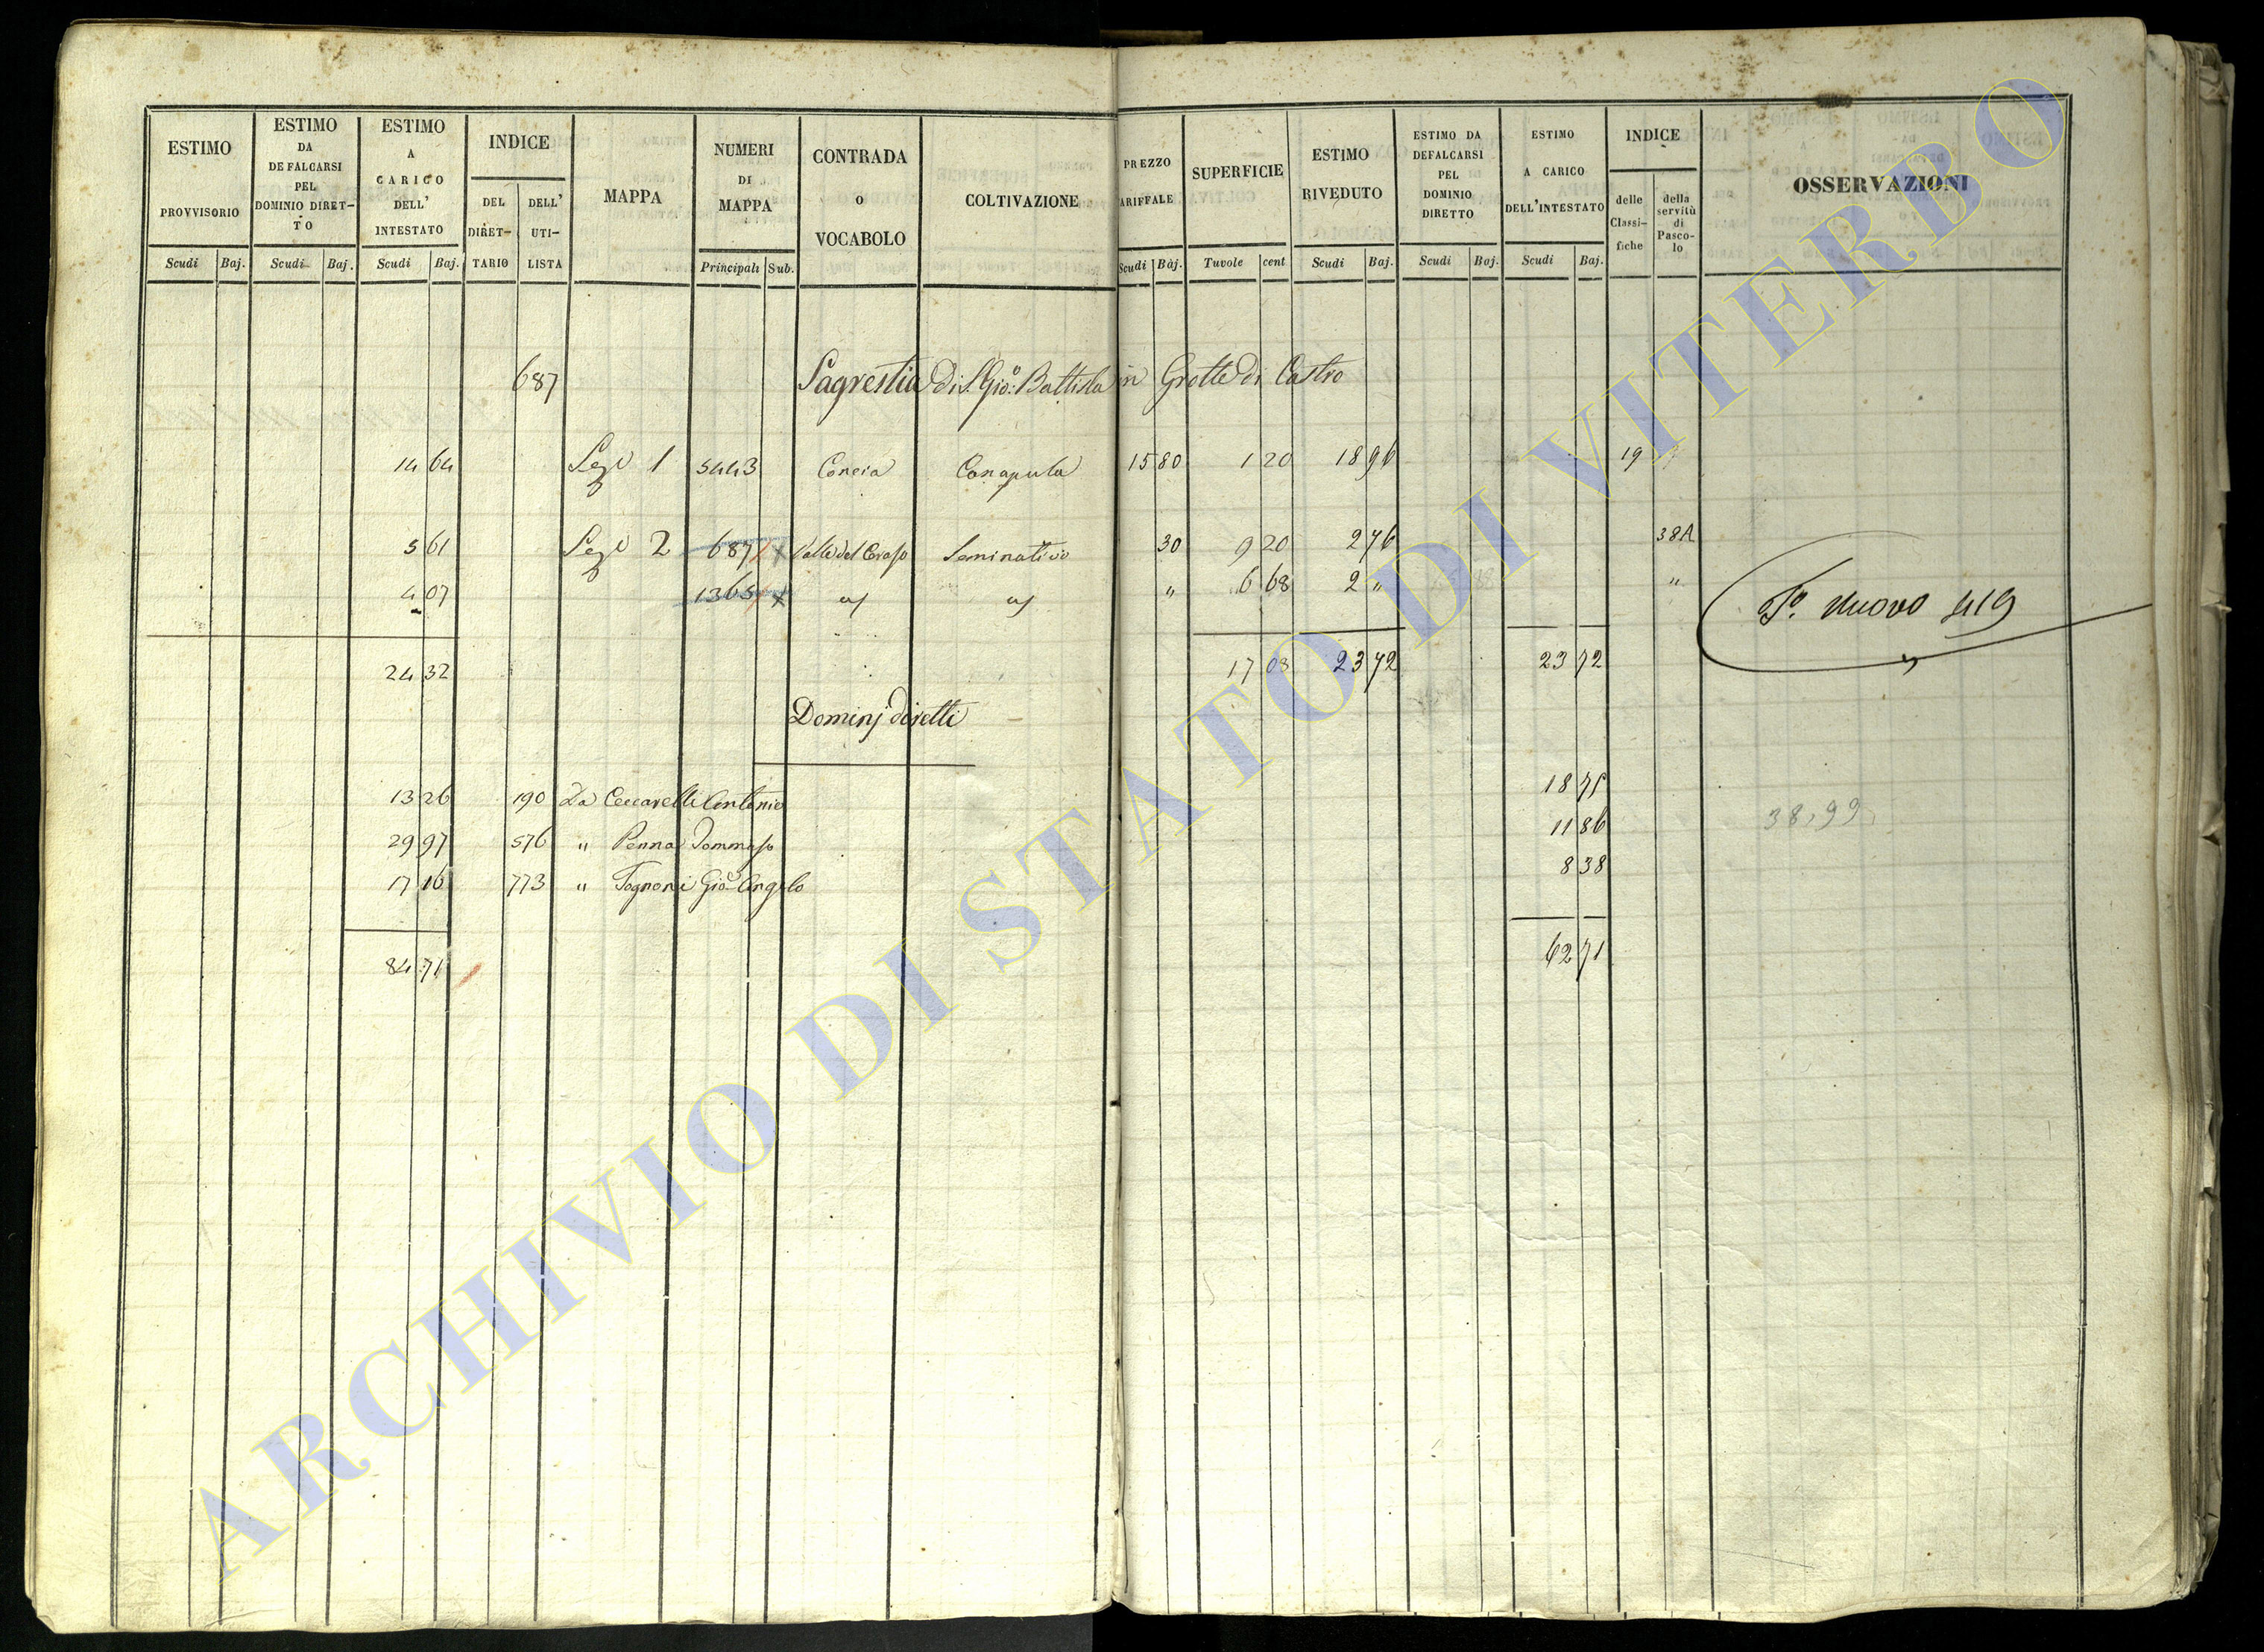 ESTIMO PROVVISORIO | ESTIMO DA DEFALCARSI PEL DOMINIO DIRET-TO | ESTIMO A CARICO DELL' INTESTATO | INDICE | MAPPA | NUMERI DI MAPPA | CONTRADA O VOCABOLO | COLTIVAZIONE | PREZZO ARIFFALE | SUPERFICIE | ESTIMO RIVEDUTO | ESTIMO DA DEFALCARSI PEL DOMINIO DIRETTO | ESTIMO A CARICO DELL'INTESTATO | INDICE | OSSERVAZIONI
DEL DIRET-TARIO | DELL' UTI-LISTA | delle Classi-fiche | della servitù di Pasco-lo
Scudi | Baj. | Scudi | Baj. | Scudi | Baj. | Principali | Sub. | Scudi | Baj. | Tavole | cent | Scudi | Baj. | Scudi | Baj. | Scudi | Baj.
687 Sagrestia di S. Gio: Battista in Grotte di Castro
14 64 Sez.e 1 5443 Concia Canapula 15 80 1 20 18 96 19
5 61 Sez.e 2 687 x Valle del Ceraso Seminativo 30 9 20 2 76 38A
4 07 1365 x " 6 68 2 " "
F.o nuovo 419
24 32 17 08 23 72 23 72
Dominj diretti
13 26 190 Da Ceccarelli Antonio 18 75
38,99
29 97 576 " Penna Tommaso 11 86
17 16 773 " Tognoni Gio Angelo 8 38
84 71 62 71
ARCHIVIO DI STATO DI VITERBO